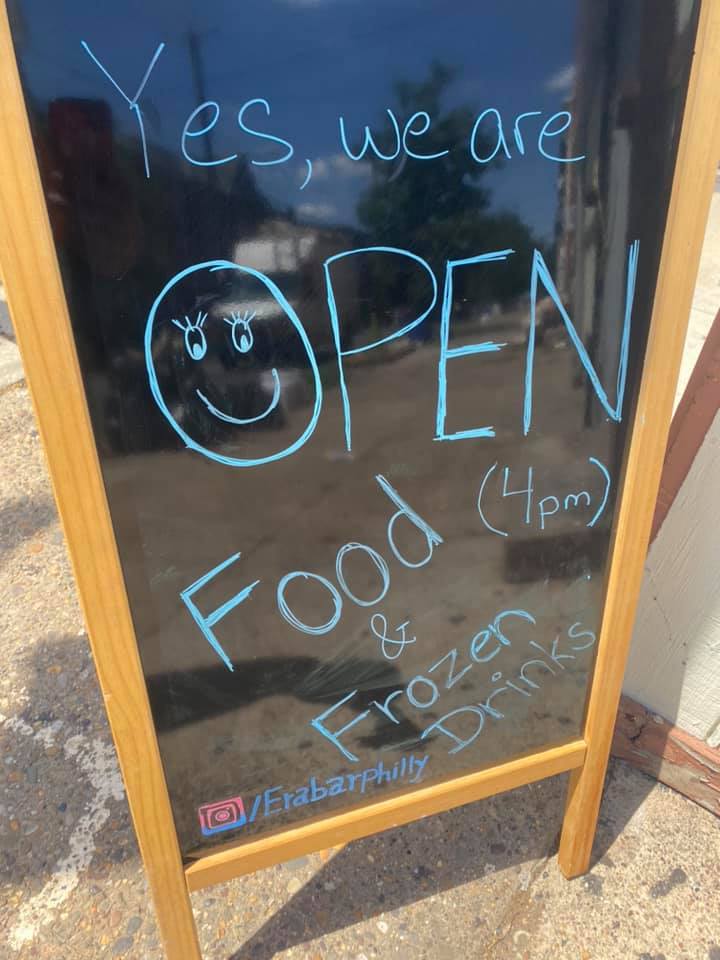 Yes, we are
OPEN
Food (4pm)
&
Frozen
Drinks
/Erabarphilly